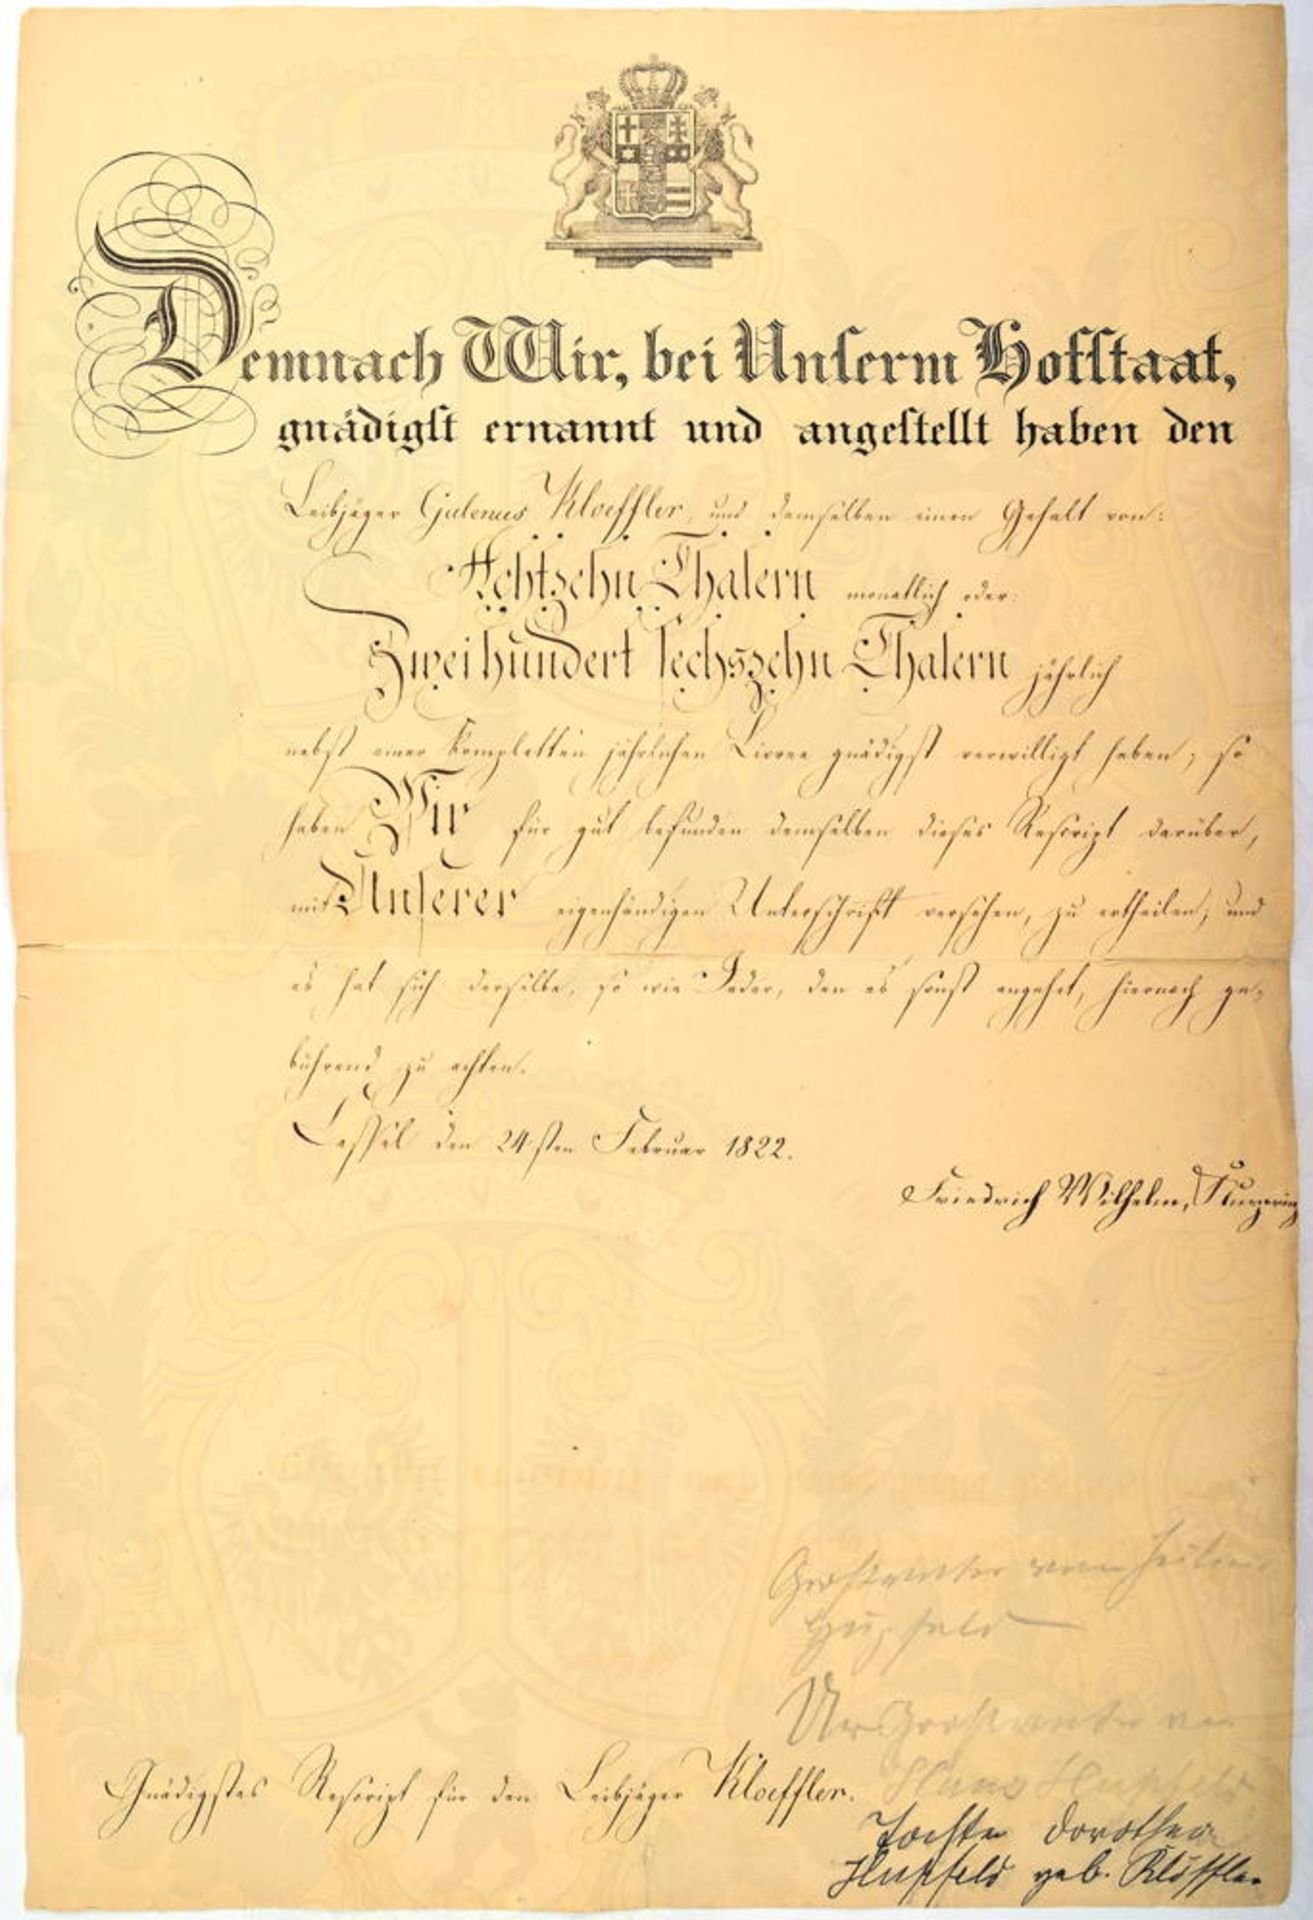 Demnach Wir, bei Unserm Hofstaat,
gnädigst ernannt und angestellt haben den
Leibjäger Galenus Kloeffler, und demselben einen Gehalt von:
Achtzehn Thalern monatlich oder:
Zweihundert sechszehn Thalern jährlich
nebst einer kompletten jährlichen Livree gnädigst verwilligt haben, so
haben Wir für gut befunden demselben dieses Rescript darüber,
mit Unserer eigenhändigen Unterschrift versehen, zu ertheilen; und
es hat sich derselbe, so wie Jeder, den es sonst angehet, hiernach ge-
bührend zu achten.
Cassel den 24sten Februar 1822.
Friedrich Wilhelm, Kurprinz
Großvater vom
Hupfeld
Ur Großvater von
Hans Hupfeld
Gnädigstes Rescript für den Leibjäger Kloeffler.
Tochter Dorothea
Hupfeld geb. Klöffler